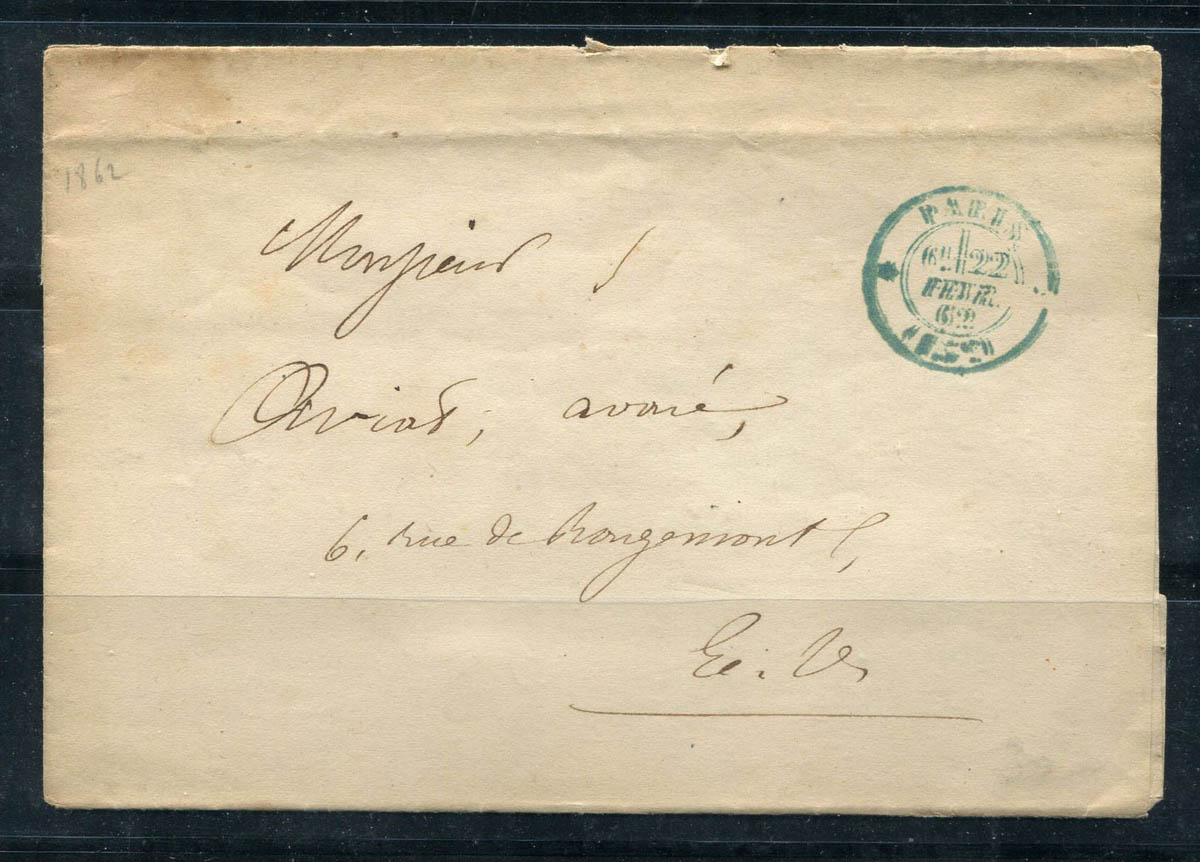 1862
PARIS
6E 22
FEVR.
62
Monsieur
Aviat, avoué,
6, rue de Rougemont,
E. V.